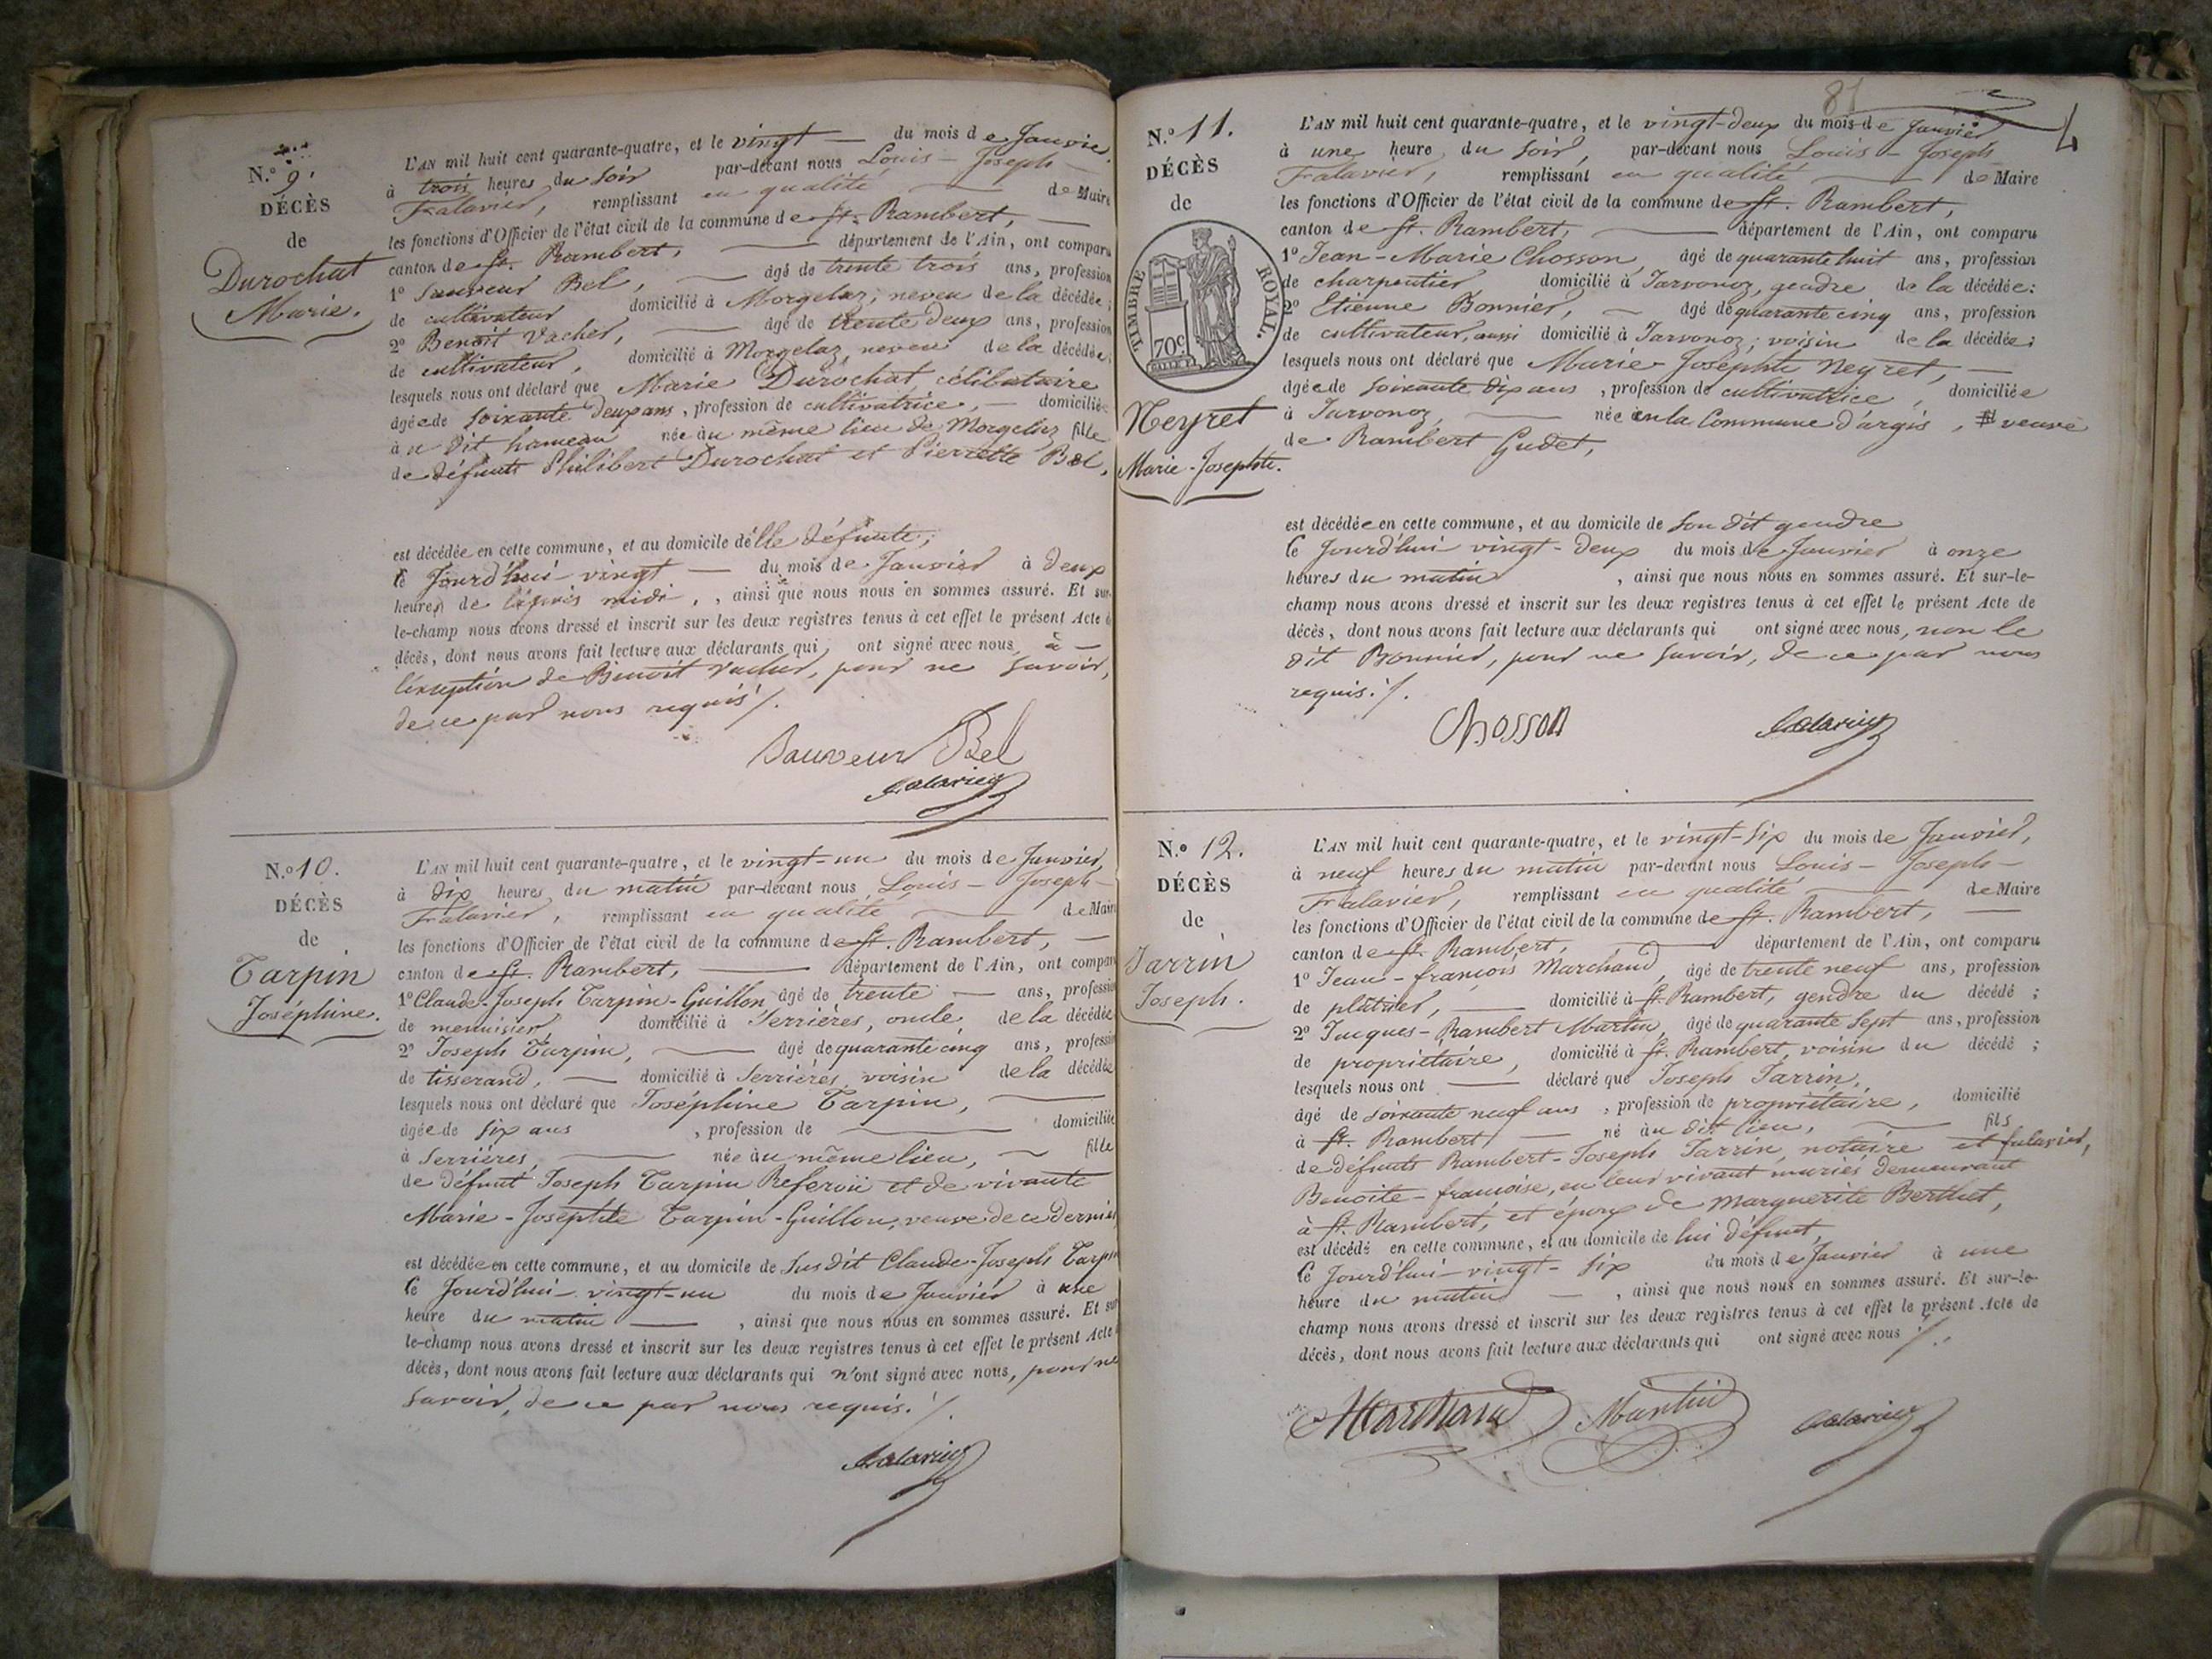 N.º 9.
DÉCÈS
de
Durochat
Marie.
L'AN mil huit cent quarante-quatre, et le vingt — du mois de Janvier
à trois heures du soir par-devant nous Louis-Joseph-
Falavier, remplissant en qualité de Maire
les fonctions d'Officier de l'état civil de la commune de St. Rambert,
canton de St. Rambert, département de l'Ain, ont comparu
1º Sauveur Bel, âgé de trente trois ans, profession
de cultivateur domicilié à Morgelaz, neveu de la décédée;
2º Benoit Vacher, âgé de trente deux ans, profession
de cultivateur, domicilié à Morgelaz, neveu de la décédée;
lesquels nous ont déclaré que Marie Durochat, célibataire
âgée de soixante deux ans, profession de cultivatrice, — domiciliée
à ce dit hameau née au même lieu de Morgelaz fille
de défunts Philibert Durochat et Pierrette Bel,
est décédée en cette commune, et au domicile d'elle défunte,
le Jourd'hui vingt — du mois de Janvier à deux
heures de l'après midi, , ainsi que nous nous en sommes assuré. Et sur-
le-champ nous avons dressé et inscrit sur les deux registres tenus à cet effet le présent Acte de
décès, dont nous avons fait lecture aux déclarants qui ont signé avec nous à —
l'exception de Benoit Vacher, pour ne savoir,
de ce par nous requis ./.
Sauveur Bel
Falavier
N.º 10.
DÉCÈS
de
Tarpin
Joséphine.
L'AN mil huit cent quarante-quatre, et le vingt-un du mois de Janvier,
à dix heures du matin par-devant nous Louis-Joseph-
Falavier, remplissant en qualité de Maire
les fonctions d'Officier de l'état civil de la commune de St. Rambert, —
canton de St. Rambert, — département de l'Ain, ont comparu
1º Claude-Joseph Tarpin-Guillon, âgé de trente — ans, profession
de menuisier domicilié à Serrières, oncle de la décédée
2º Joseph Tarpin, — âgé de quarante cinq ans, profession
de tisserand, — domicilié à Serrières, voisin de la décédée
lesquels nous ont déclaré que Joséphine Tarpin, —
âgée de six ans , profession de — domiciliée
à Serrières, — née au même lieu, — fille
de défunt Joseph Tarpin et de vivante
Marie-Josephte Tarpin-Guillon, veuve de ce dernier
est décédée en cette commune, et au domicile de susdit Claude-Joseph Tarpin
le Jourd'hui vingt-un du mois de Janvier à une
heure du matin — , ainsi que nous nous en sommes assuré. Et sur
le-champ nous avons dressé et inscrit sur les deux registres tenus à cet effet le présent Acte
décès, dont nous avons fait lecture aux déclarants qui n'ont signé avec nous, pour ne
savoir, de ce par nous requis. ./.
Falavier
81
4
N.º 11.
DÉCÈS
de
TIMBRE ROYAL.
70c
Neyret
Marie-Josephte.
L'AN mil huit cent quarante-quatre, et le vingt-deux du mois de Janvier
à une heure du soir, par-devant nous Louis-Joseph
Falavier, remplissant en qualité — de Maire
les fonctions d'Officier de l'état civil de la commune de St. Rambert,
canton de St. Rambert, — département de l'Ain, ont comparu
1º Jean-Marie Chosson, âgé de quarante huit ans, profession
de charpentier domicilié à Javornoz, gendre de la décédée:
2º Etienne Bonnier, — âgé de quarante cinq ans, profession
de cultivateur, aussi domicilié à Javornoz; voisin de la décédée:
lesquels nous ont déclaré que Marie-Josephte Neyret, —
âgée de soixante dix ans , profession de cultivatrice, domiciliée
à Javornoz, — née en la Commune d'argis, veuve
de Rambert Gudet,
est décédée en cette commune, et au domicile de son dit gendre
le Jourd'hui vingt-deux du mois de Janvier à onze
heures du matin , ainsi que nous nous en sommes assuré. Et sur-le-
champ nous avons dressé et inscrit sur les deux registres tenus à cet effet le présent Acte de
décès, dont nous avons fait lecture aux déclarants qui ont signé avec nous, non le
dit Bonnier, pour ne savoir, de ce par nous
requis. ./.
Chosson Falavier
N.º 12.
DÉCÈS
de
Jarrin
Joseph.
L'AN mil huit cent quarante-quatre, et le vingt-six du mois de Janvier,
à neuf heures du matin par-devant nous Louis-Joseph-
Falavier, remplissant en qualité — de Maire
les fonctions d'Officier de l'état civil de la commune de St. Rambert, —
canton de St. Rambert, — département de l'Ain, ont comparu
1º Jean-françois Marchand, âgé de trente neuf ans, profession
de plâtrier, — domicilié à St. Rambert, gendre du décédé ;
2º Jacques-Rambert Martin, âgé de quarante sept ans, profession
de propriétaire, domicilié à St. Rambert, voisin du décédé ;
lesquels nous ont — déclaré que Joseph Jarrin,
âgé de soixante neuf ans , profession de propriétaire, domicilié
à St. Rambert, — né au dit lieu, — fils
de défunts Rambert-Joseph Jarrin, notaire et falavier,
Benoite-françoise, en leur vivant mariés demeurant
à St. Rambert, et époux de Marguerite Berthet,
est décédé en cette commune, et au domicile de lui défunt,
le Jourd'hui vingt-six du mois de Janvier à une
heure du matin — , ainsi que nous nous en sommes assuré. Et sur-le-
champ nous avons dressé et inscrit sur les deux registres tenus à cet effet le présent Acte de
décès, dont nous avons fait lecture aux déclarants qui ont signé avec nous ./.
Marchand Martin Falavier